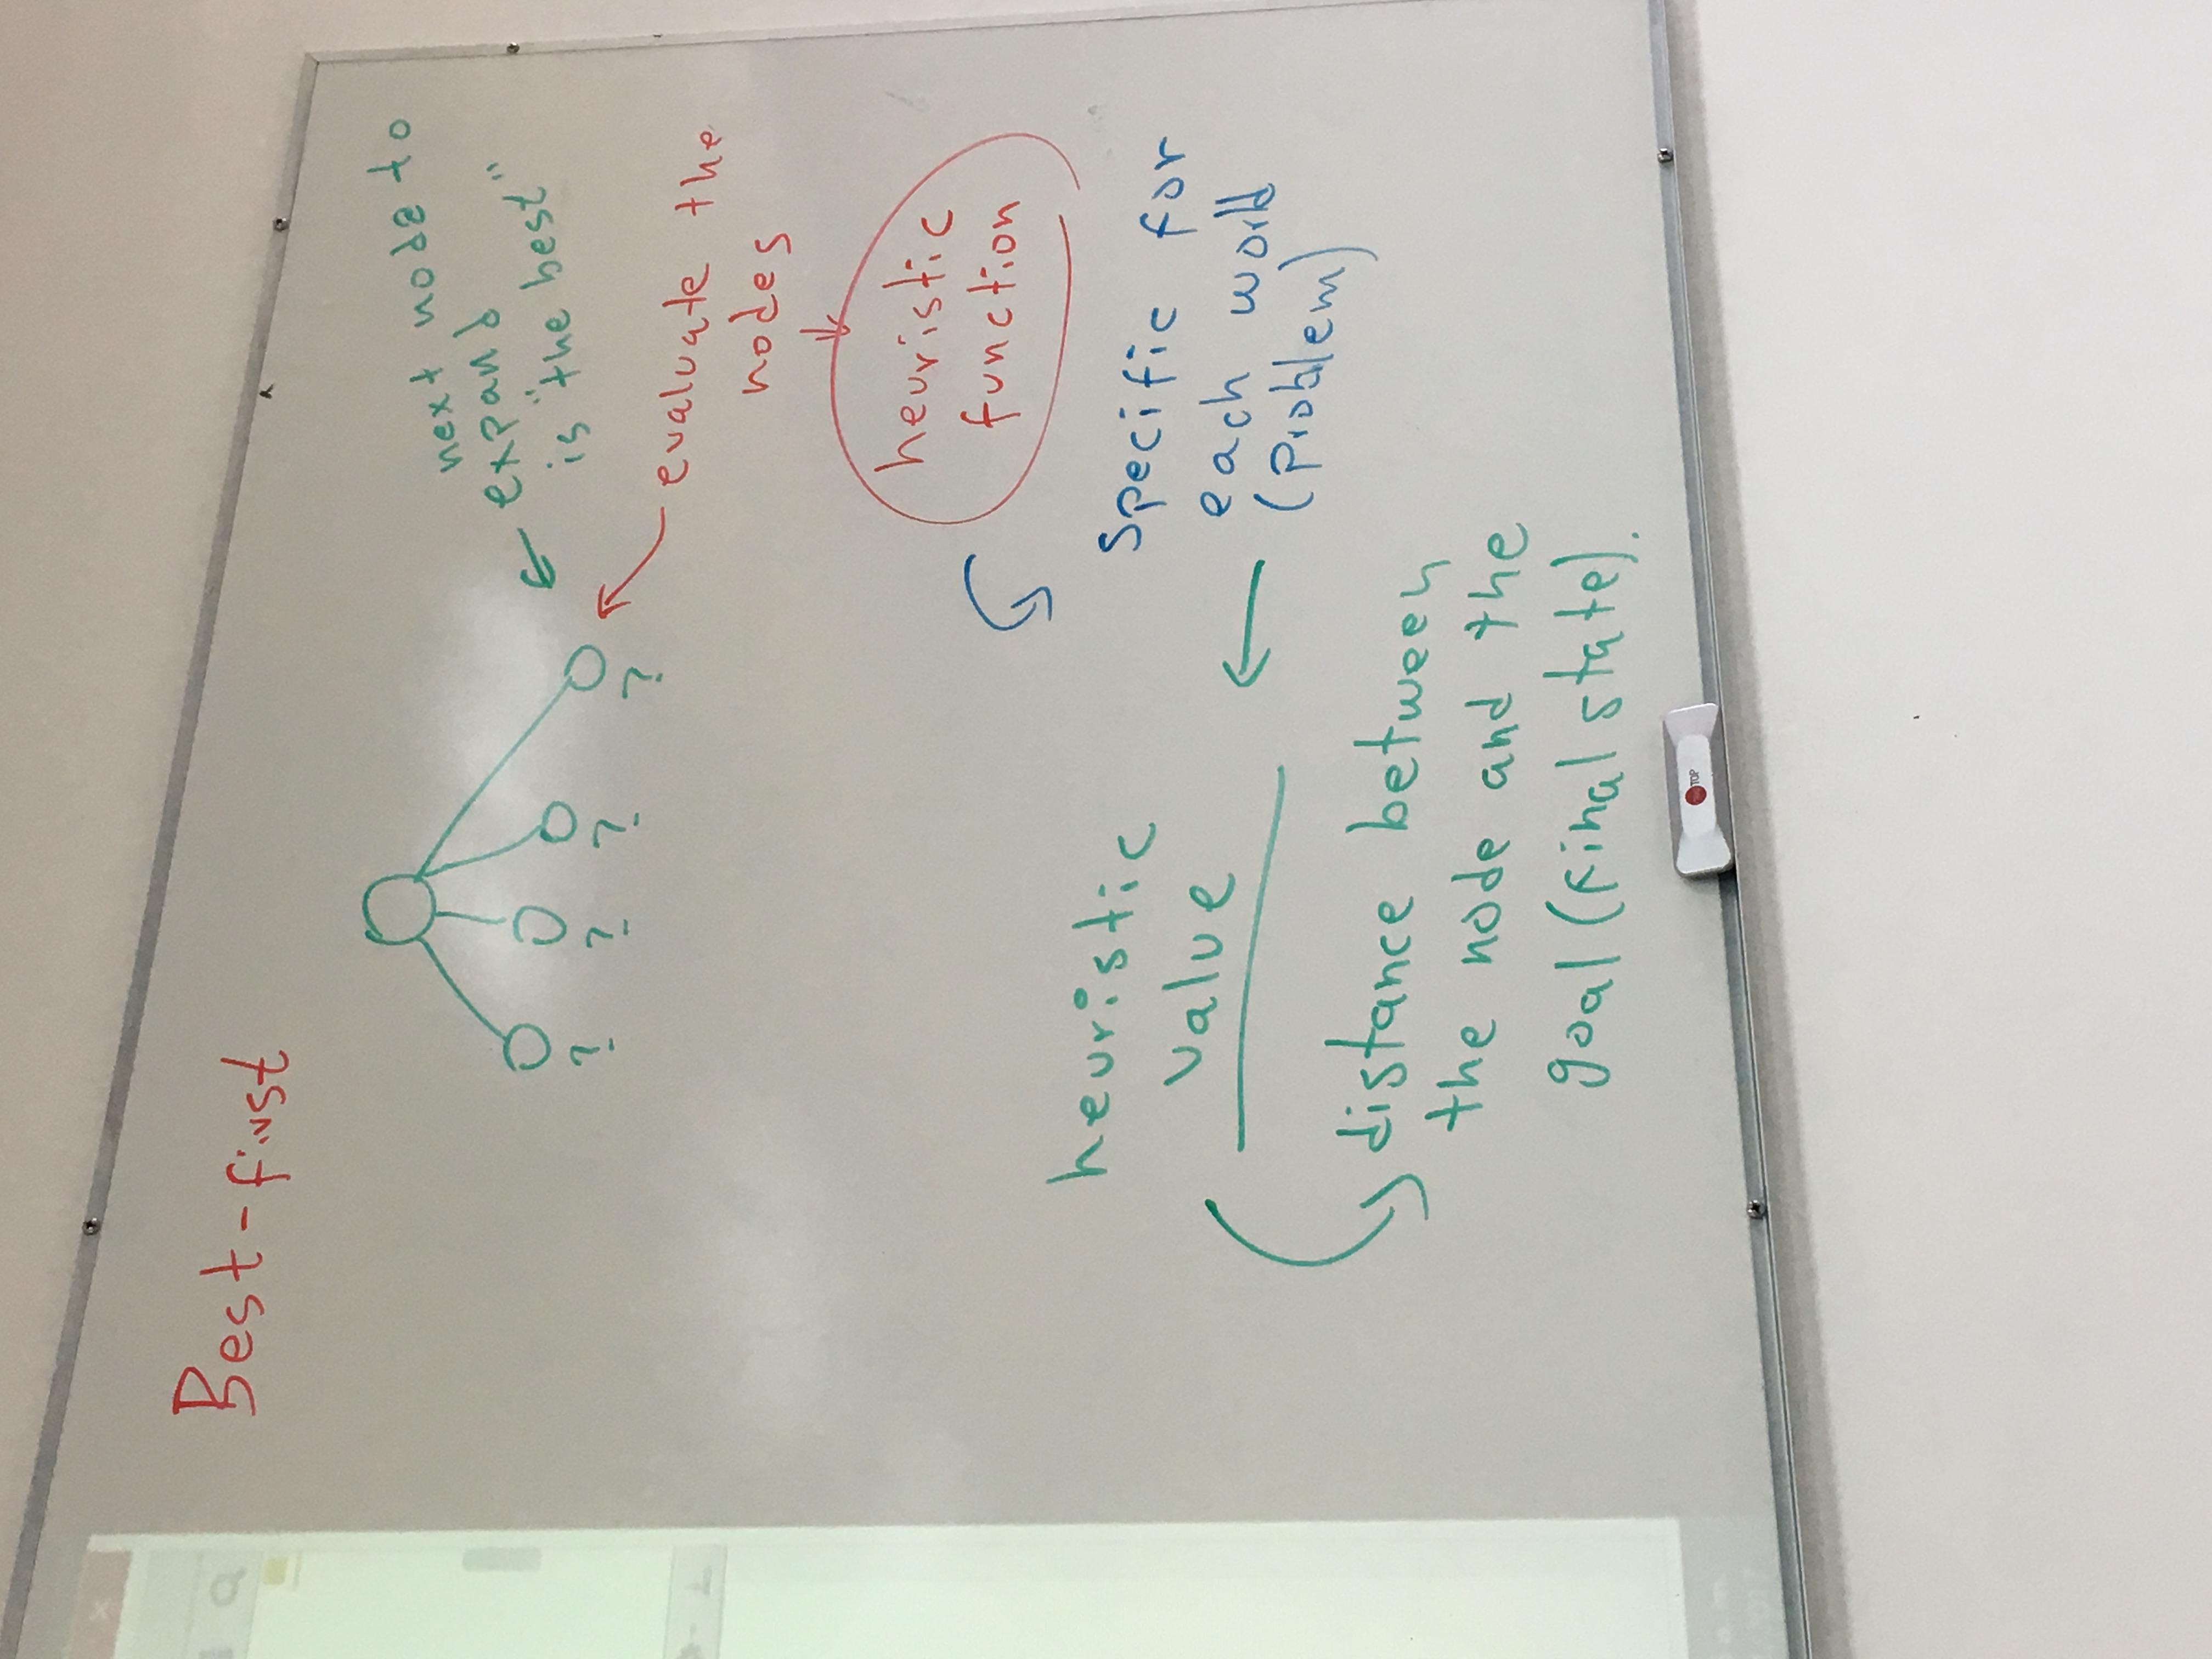 Best-first
next node to
expand
is "the best"
? ? ? ?
evaluate the
nodes
heuristic
function
specific for
each world
(problem)
heuristic
value
distance between
the node and the
goal (final state).
TOP